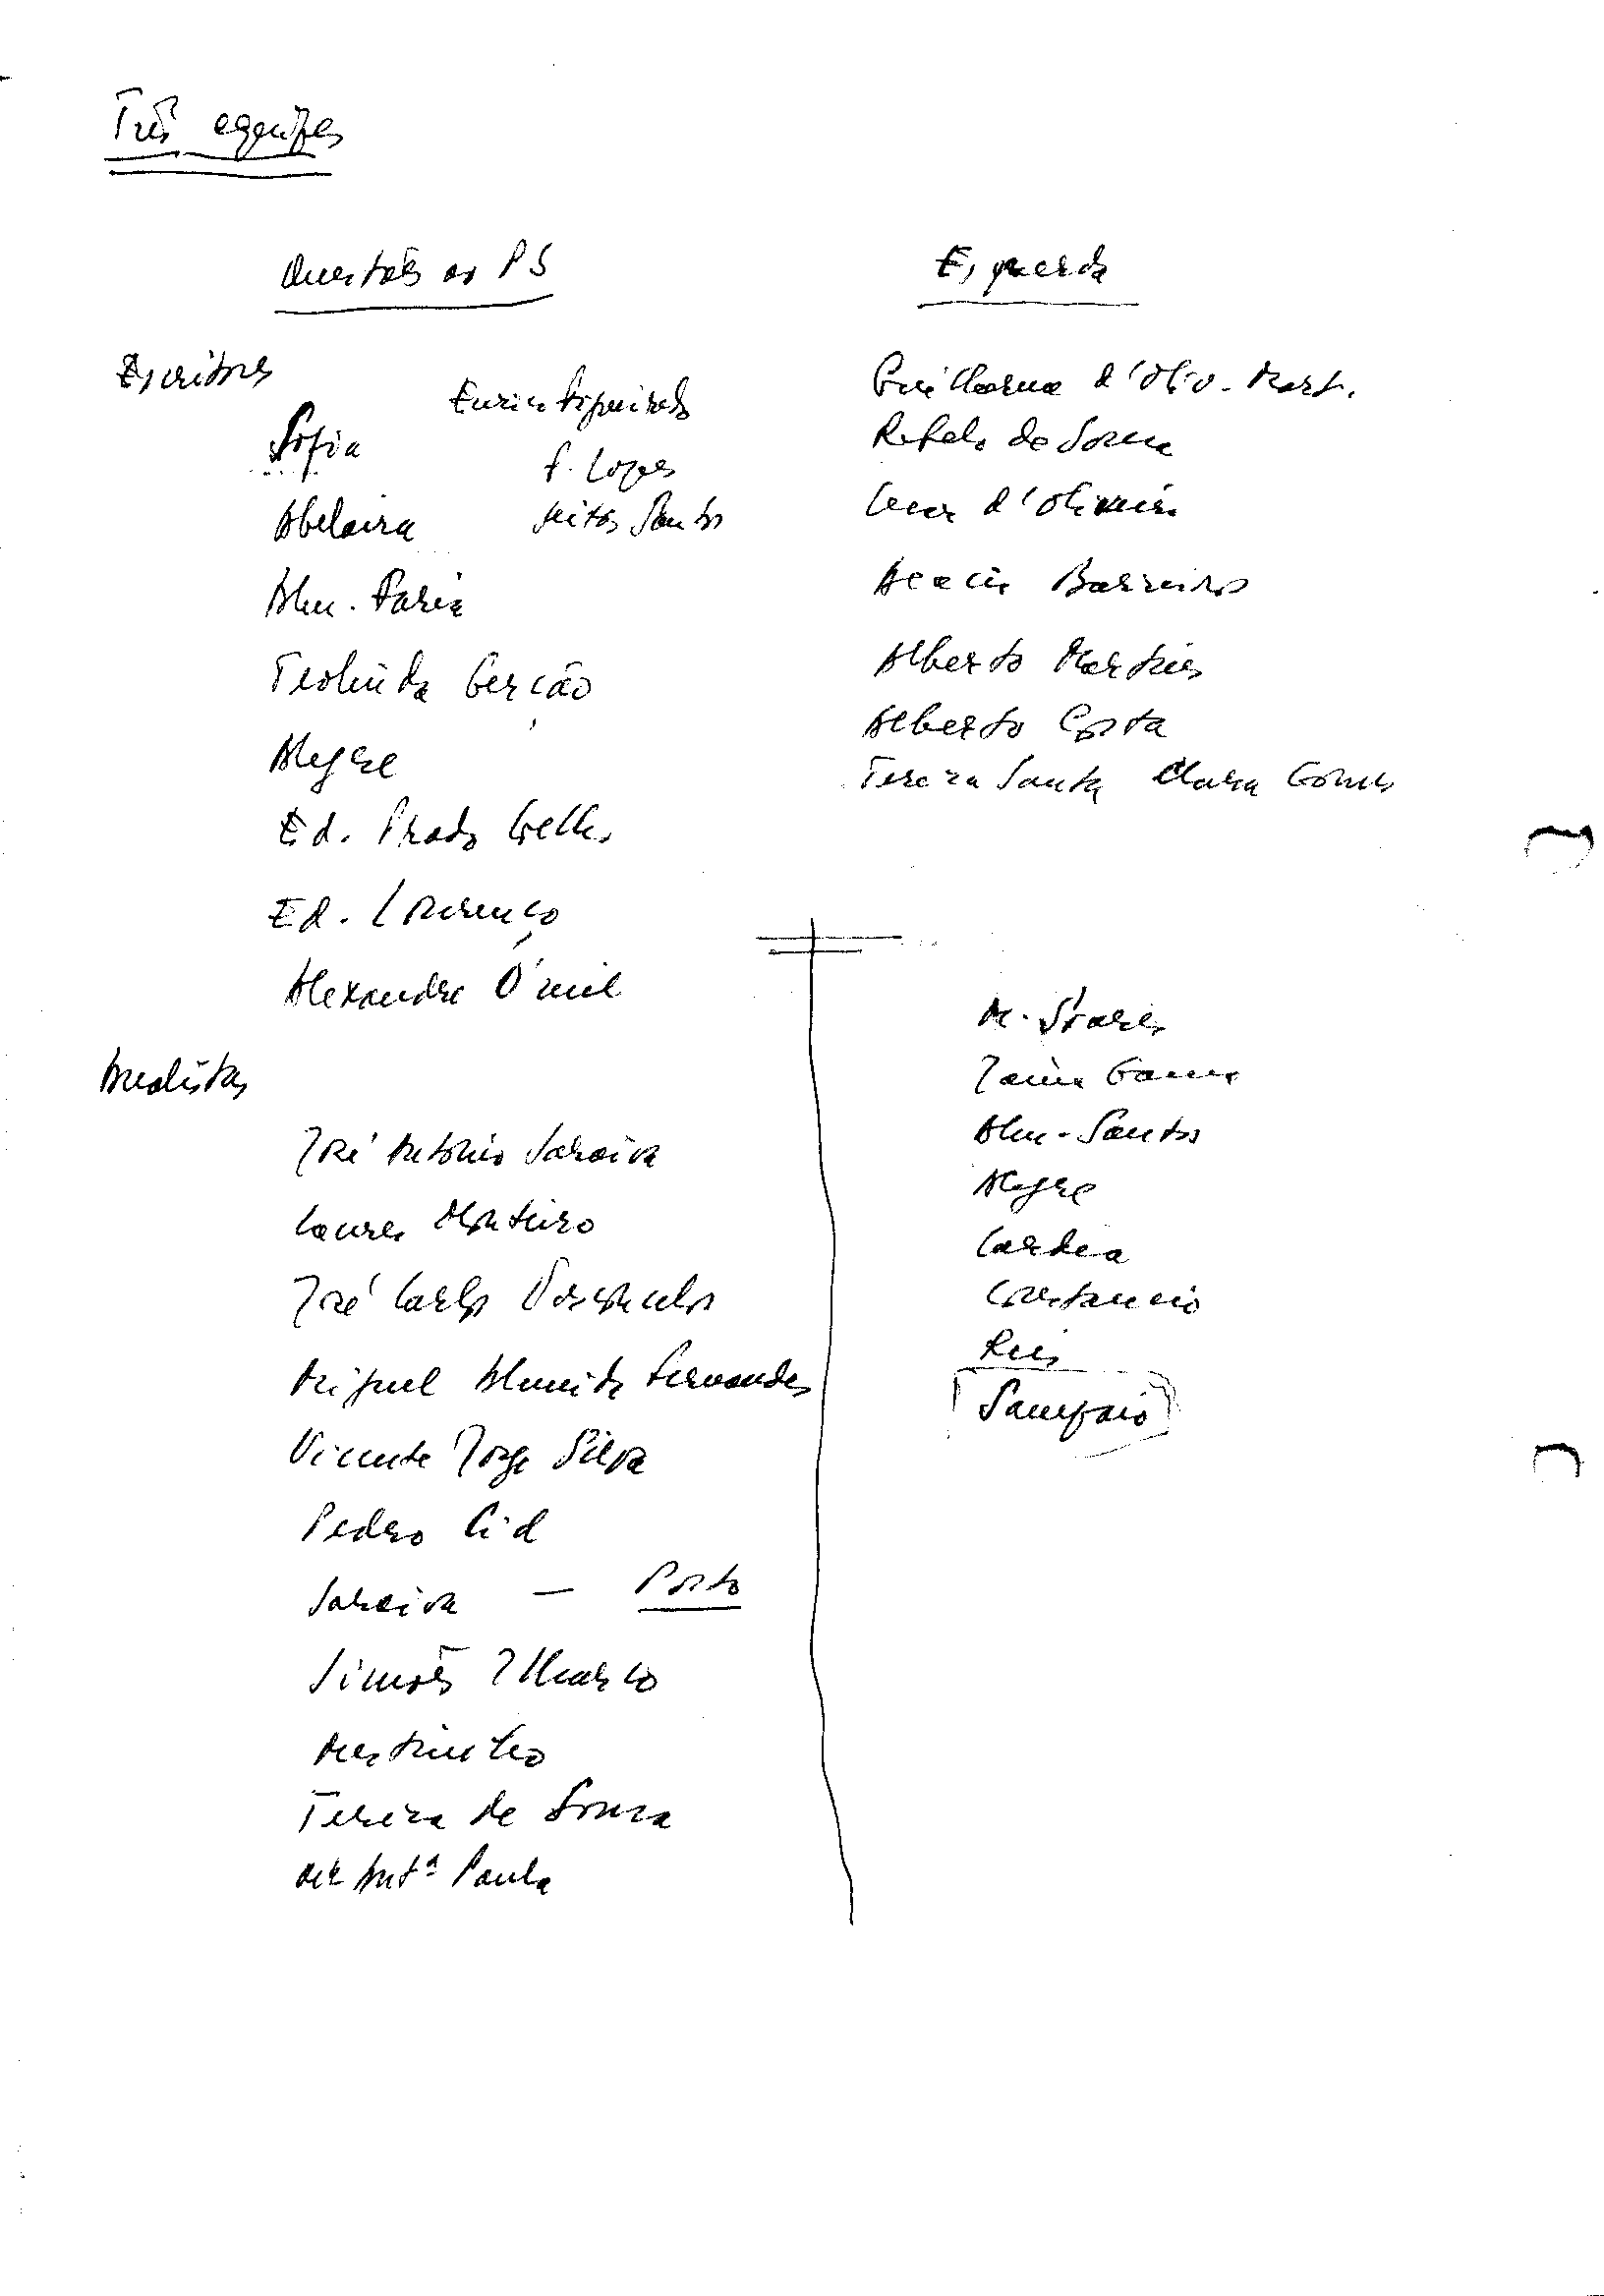 Três equipes
Questões ao PS
Escritores
Eurico Figueiredo
Sofia
F. Lopes
Abelaira
Seixas Santos
Alm. Faria
Teolinda Gersão
Alegre
Ed. Prado Coelho
Ed. Lourenço
Alexandre O'neil
Analistas
José António Saraiva
Loures Monteiro
José Carlos Vasconcelos
Miguel Almeida Fernandes
Vicente Jorge Silva
Pedro Cid
Saraiva — Porto
Simões Ilharco
Martinho
Teresa de Sousa
Antª Paula
Esquerda
Guilherme d'Oliv. Mart.
Rebelo de Sousa
César d'Oliveira
Acácio Barreiros
Alberto Martins
Alberto Costa
Teresa Santa Clara Gomes
M. Soares
Jaime Gama
Alm. Santos
Alegre
Cardia
Constancio
Reis
Sampaio